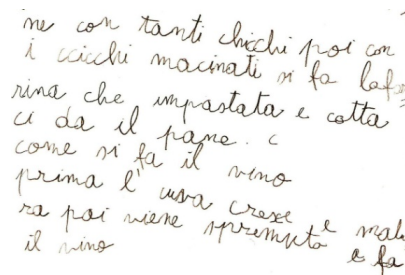 ne con tanti chicchi poi con
i ccicchi macinati si fa lafa
rina che impastata e cotta
ci da il pane. C
come si fa il vino
prima l'uva cresce e matu
ra poi viene spremuta e fa
il vino